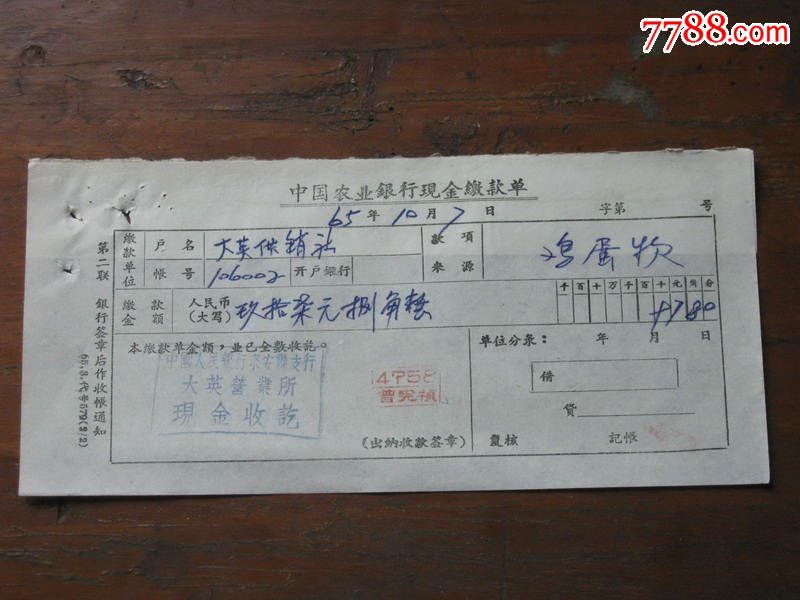 7788.com
中国农业銀行現金繳款单
65 年 10 月 7 日 字第 号
繳款单位 户名 大英供銷社 款項来源 鸡蛋款
帳号 106002 开户銀行
繳金 款額 人民币(大写) 玖拾柒元捌角整 千百十万千百十元角分 9780
本繳款单金額，业已全数收訖。 单位分录： 年 月 日
中國人民銀行 支行
大英營業所
現金收訖
4758
借
貸
(出納收款簽章) 复核 記帳
第二联 銀行签章后作收帳通知
65.8.代号579(2/2)